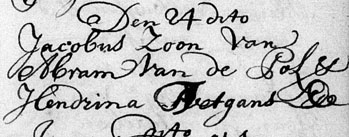 Den 24 dito
Jacobus Zoon van
Abram Van de Pol &
Hendrina Vetgans
dito